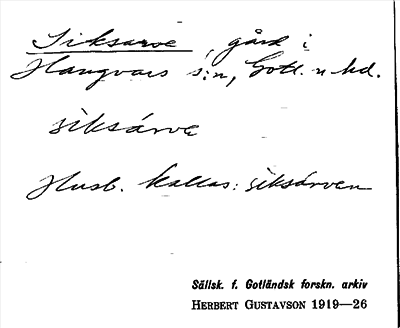 Siksarve, gård i
Hangvars s:n, Gotl. n hd.
siksárva
Husb. kallas: siksárven
Sällsk. f. Gotländsk forskn. arkiv
HERBERT GUSTAVSON 1919—26